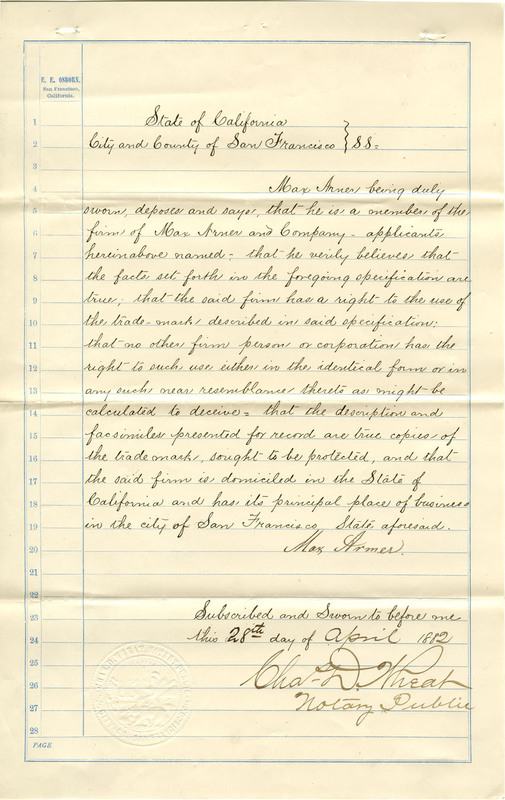 E. E. OSBORN,
San Francisco,
California.
1 State of California
2 City and County of San Francisco } SS=
3
4 Max Armer being duly
5 sworn, deposes and says, that he is a member of the
6 firm of Max Armer and Company - applicants
7 hereinabove named - that he verily believes that
8 the facts set forth in the foregoing specification are
9 true; that the said firm has a right to the use of
10 the trade-mark described in said specification:
11 that no other firm person or corporation has the
12 right to such use either in the identical form or in
13 any such near resemblance thereto as might be
14 calculated to deceive = that the description and
15 facsimiles presented for record are true copies of
16 the trade mark, sought to be protected, and that
17 the said firm is domiciled in the State of
18 California and has its principal place of business
19 in the city of San Francisco, State aforesaid.
20 Max Armer.
21
22
23 Subscribed and Sworn to before me
24 this 28th day of April 1882
25
26 Chas D. Wheat
27 Notary Public
28
PAGE